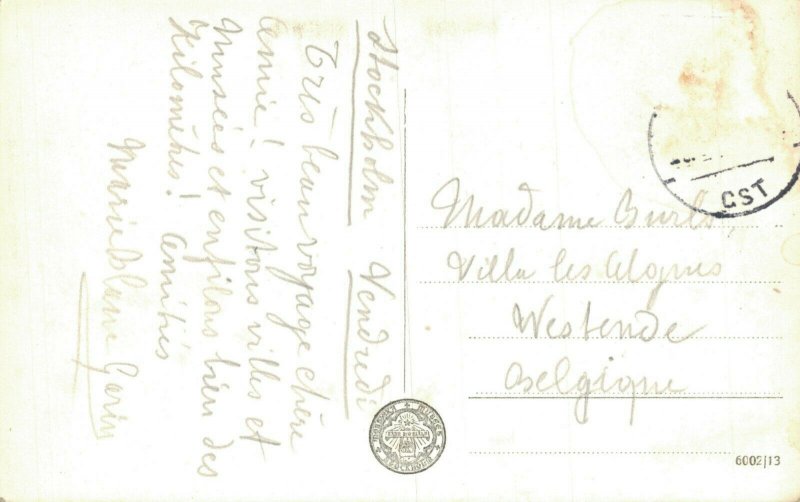 Stockholm Vendredi
Très beau voyage chère
amie! visitons villes et
Musées et enfilons bien des
Kilomètres! Amitiés
Marie Garin
Madame
Villa les
Westende
Belgique
CST
NORDISKA MUSEET
STOCKHOLM
6002/13